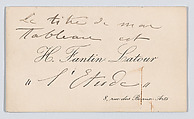 Le titre de mon
tableau est
H. Fantin Latour
"l'Etude"
8, rue des Beaux-Arts